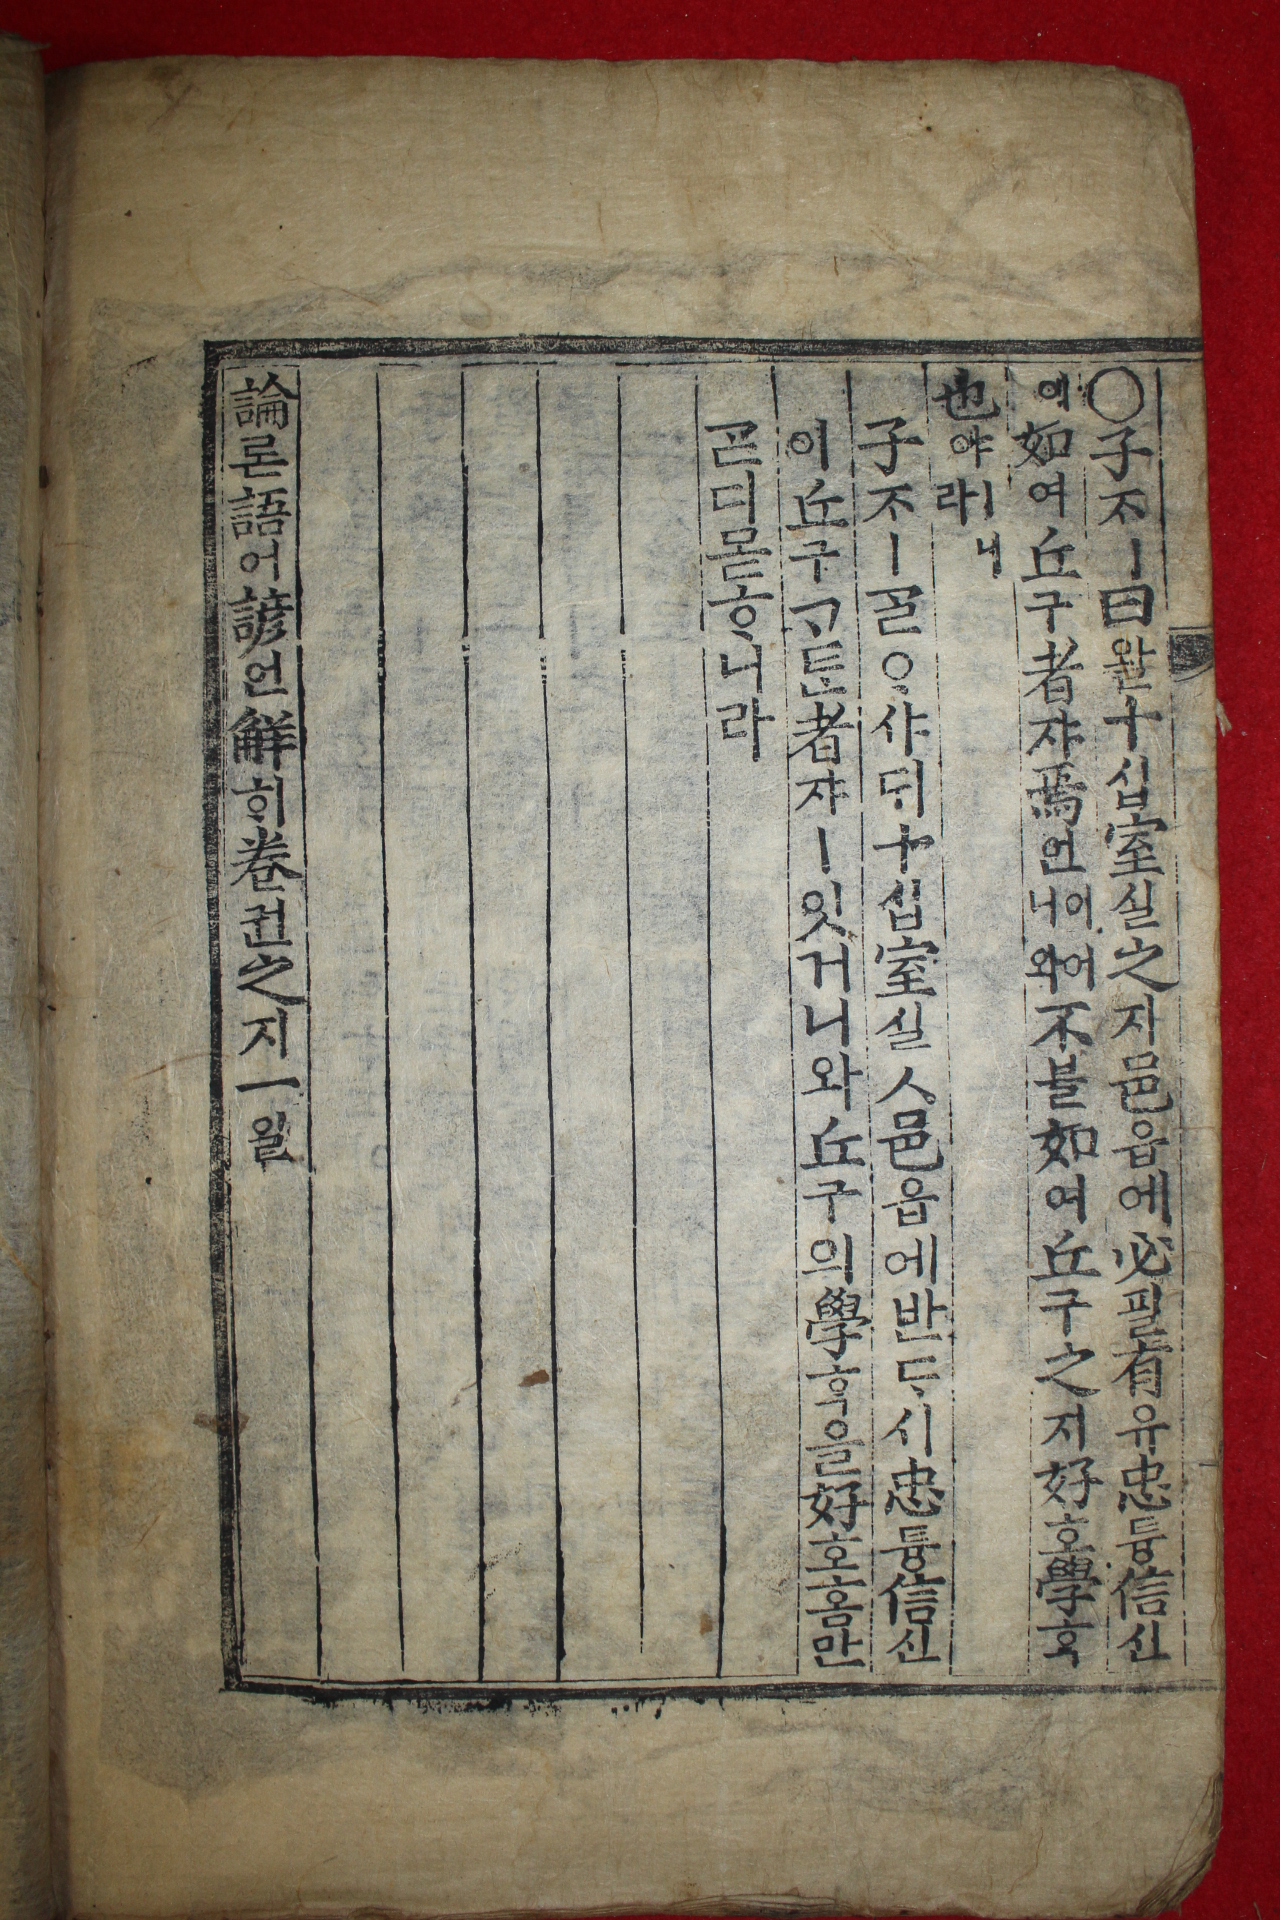 ○子ᄌᆞㅣ曰왈十십室실之지邑읍에必필有유忠튱信신
이如여丘구者쟈焉언이어니와不블如여丘구之지好호學ᄒᆞᆨ
也야ㅣ니라
子ᄌᆞㅣᄀᆞᆯᄋᆞ샤ᄃᆡ十십室실ㅅ邑읍에반ᄃᆞ시忠튱信신
이丘구ᄀᆞᄐᆞᆫ者쟈ㅣ잇거니와丘구의學ᄒᆞᆨ을好호홈만
ᄀᆞᆮ디몯ᄒᆞ니라
論론語어諺언觧ᄒᆡ卷권之지一일